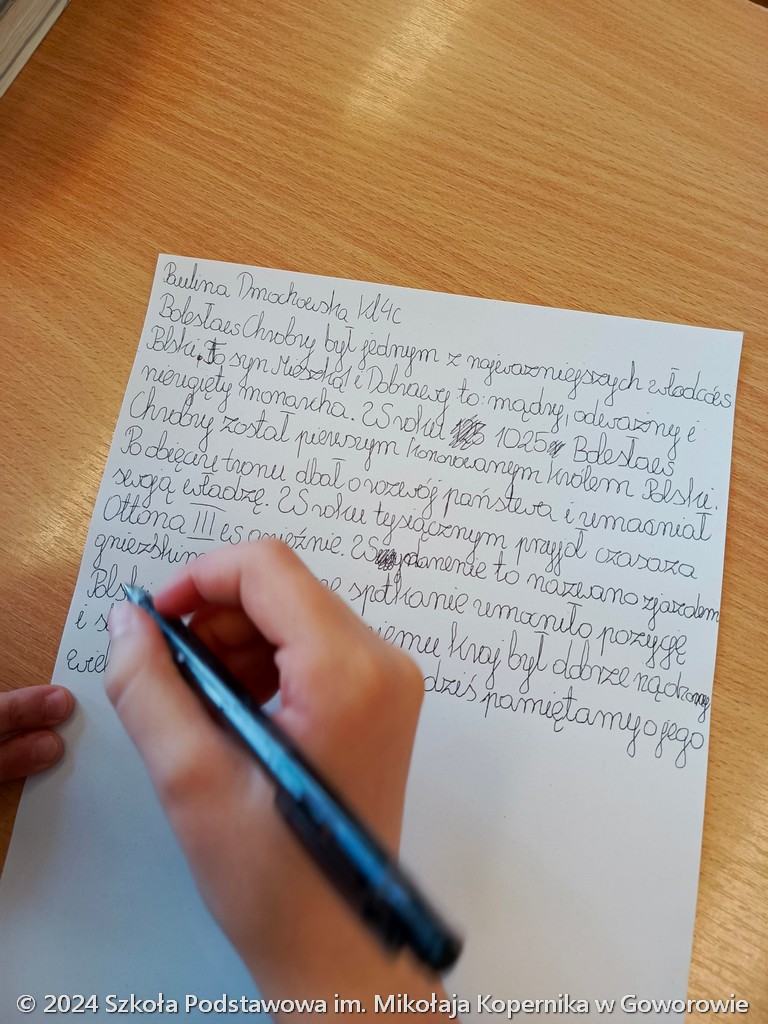 Paulina Dmochowska kl4c
Bolesław Chrobry był jednym z najważniejszych władców
Polski. To syn Mieszka I i Dobrawy to: mądry, odważny i
nieugięty monarcha. W roku 1025 Bolesław
Chrobry został pierwszym koronowanym królem Polski.
Po objęciu tronu dbał o rozwój państwa i umacniał
swoją władzę. W roku tysiącznym przyjął czasaza
Ottona III w gnieźnie. Wydarzenie to nazwano zjazdem
spotkanie umocniło pozygę
Polski kraj był dobrze rządzony
i dziś pamiętamy o jego
© 2024 Szkoła Podstawowa im. Mikołaja Kopernika w Goworowie